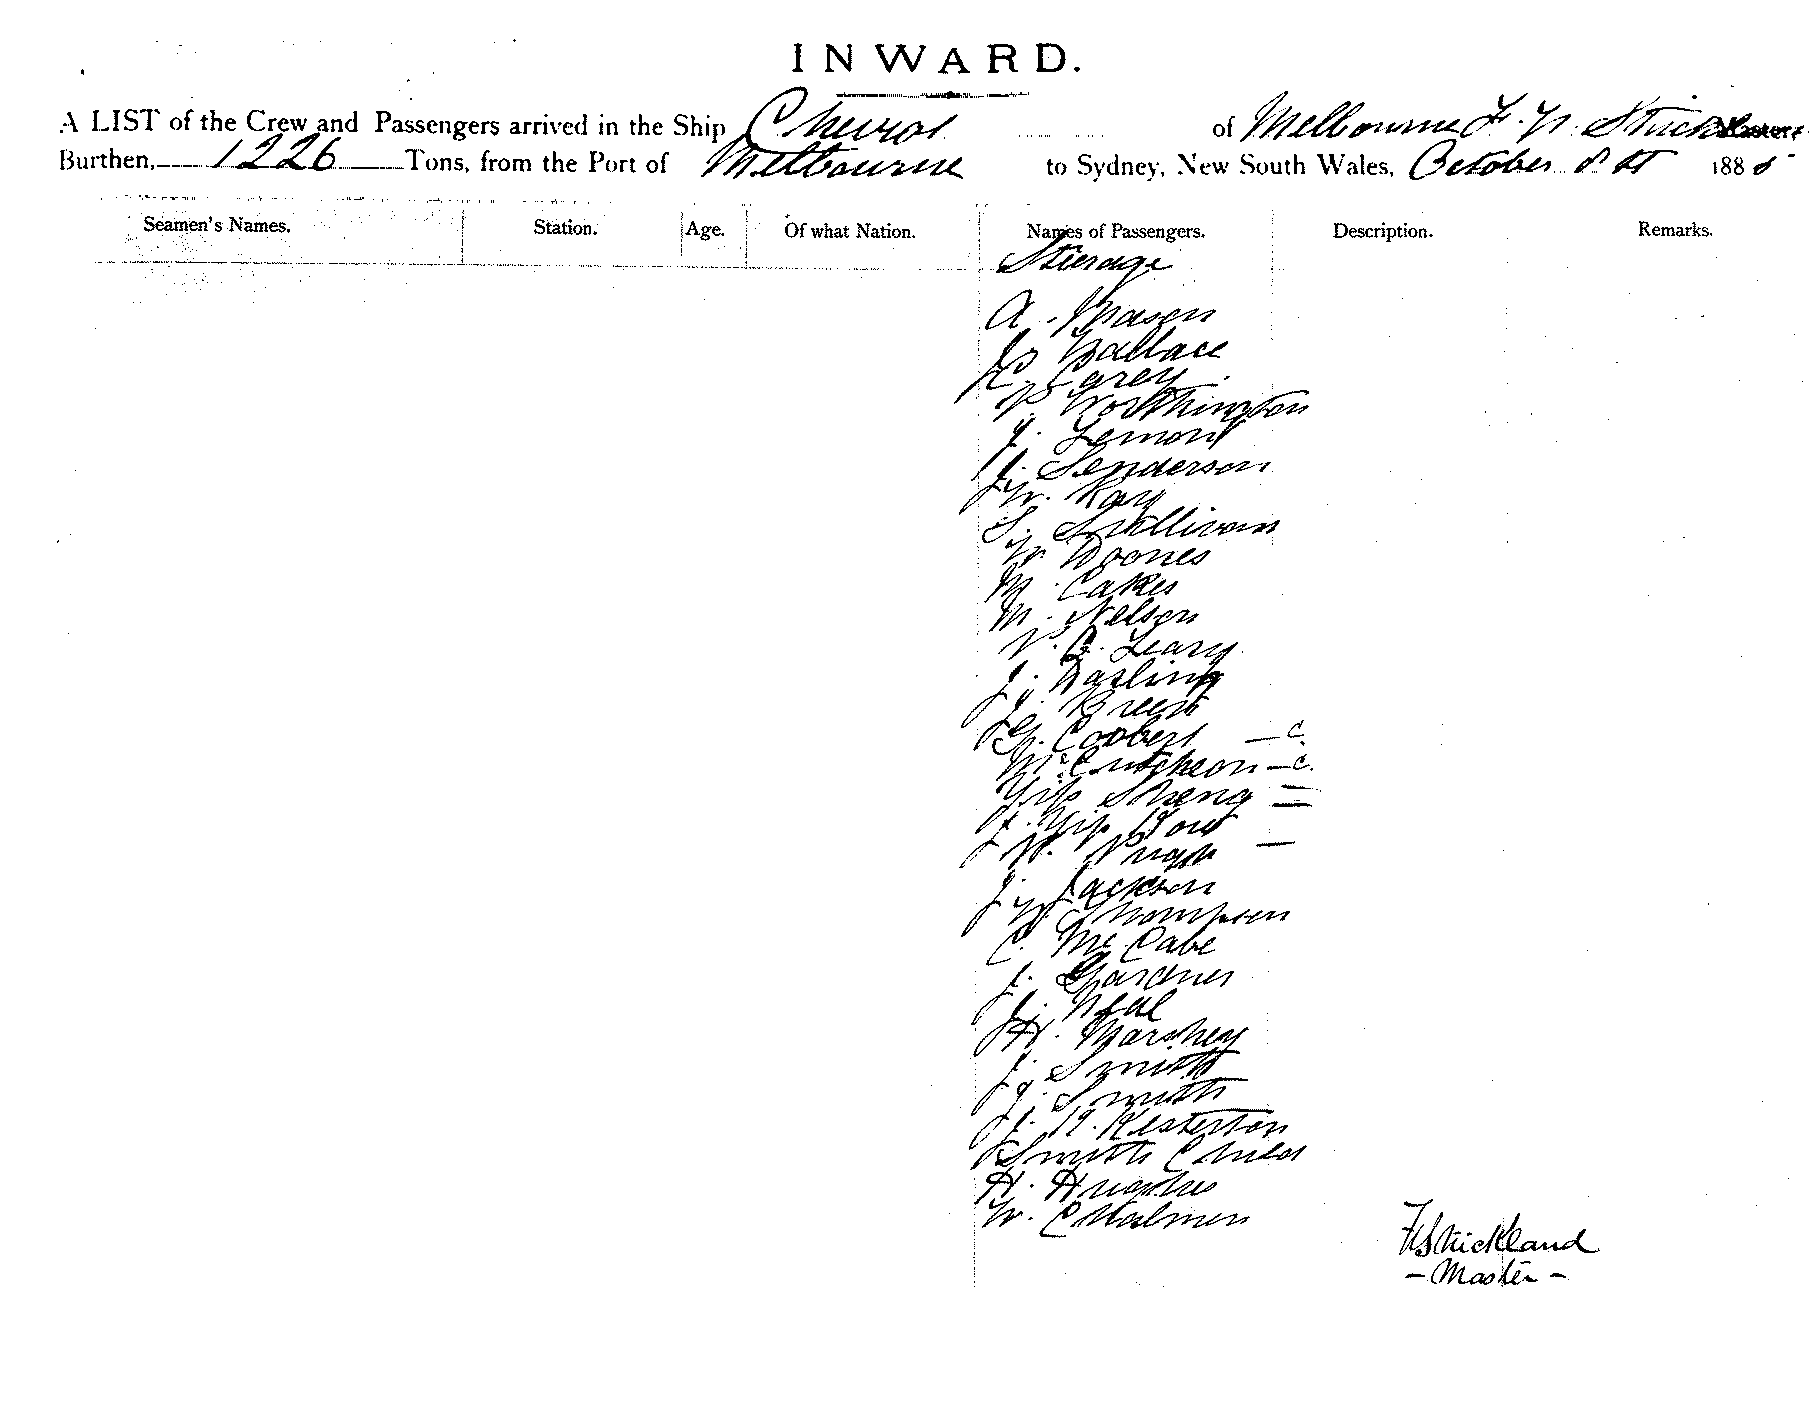 INWARD.
A LIST of the Crew and Passengers arrived in the Ship Cheviot of Melbourne F. W. Strickland
Burthen, 1226 Tons, from the Port of Melbourne to Sydney, New South Wales, October 8th 1885
Seamen's Names. Station. Age. Of what Nation. Names of Passengers. Description. Remarks.
Steerage
A. Mason
J Wallace
C. Carey
P. Worthington
J. Lemont
J. Henderson
W. Kay
S. Sullivan
W Doones
M. Cakes
M. Nelson
P. O. Leary
J. Darling
J. Green
G. Coobert — C.
McCutcheon — C.
Yip Sheng =
J. Yip Yow —
W. Pugh
J. Jackson
W Thompson
C. McCabe
J. Gardner
J. Neal
H. Marshey
J. Smith
J. Smith
J. H. Kesterton
Smith Child
H. Hughes
W. Cholmen
F W Strickland
- Master -